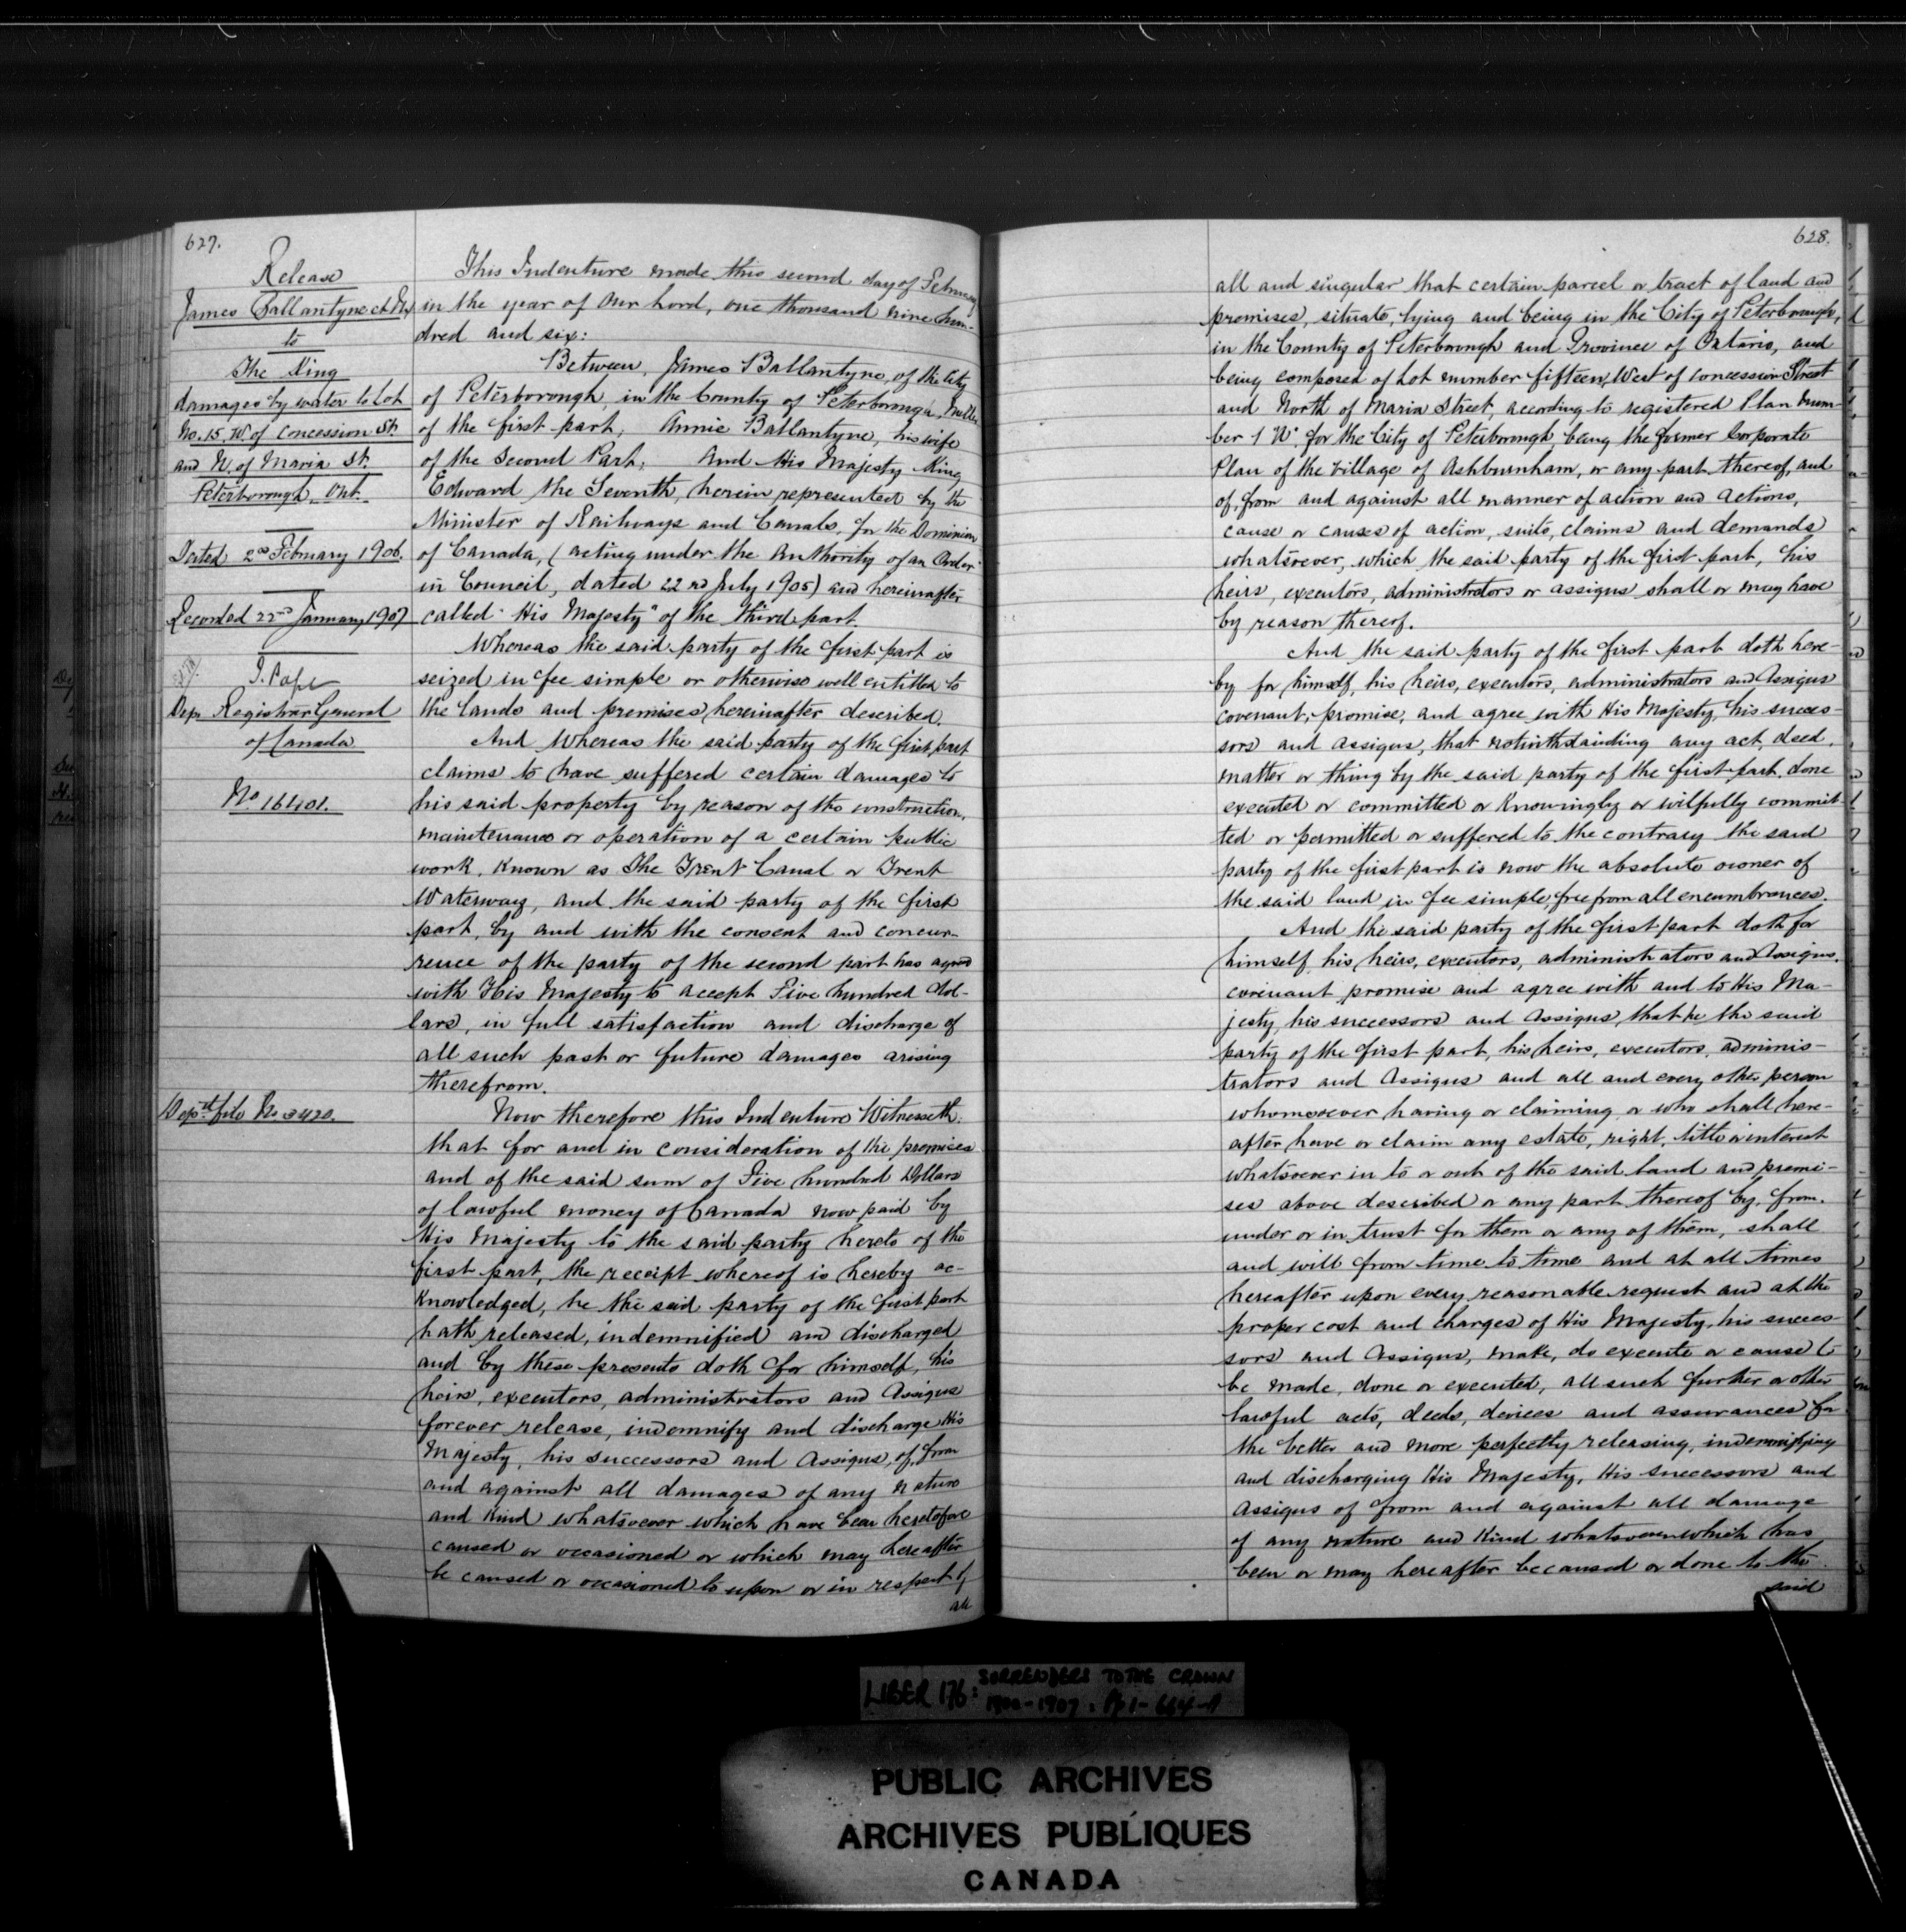 627.
Release
James Ballantyne et Ux
to
The King
damages by water to Lot
No. 15, W. of Concession St.
and N. of Maria St.
Peterborough, Ont.
Dated 2nd February 1906.
Recorded 22nd January 1907
J. Pope
Dep. Registrar General
of Canada
No 16401.
Dept file No 3420.
This Indenture made this second day of February
in the year of Our Lord, one thousand nine hun-
dred and six:
Between, James Ballantyne, of the City
of Peterborough, in the County of Peterborough, Miller
of the first part, Annie Ballantyne, his wife
of the Second Part, And His Majesty King
Edward the Seventh, herein represented by the
Minister of Railways and Canals, for the Dominion
of Canada, (acting under the authority of an Order
in Council, dated 22nd July 1905) and hereinafter
called "His Majesty" of the third part.
Whereas the said party of the first part is
seized in fee simple or otherwise well entitled to
the lands and premises hereinafter described.
And Whereas the said party of the first part
claims to have suffered certain damages to
his said property by reason of the construction,
maintenance or operation of a certain public
work, known as The Trent Canal or Trent
Waterway, and the said party of the first
part, by and with the consent and concur-
rence of the party of the second part has agreed
with His Majesty to accept Five hundred dol-
lars, in full satisfaction and discharge of
all such past or future damages arising
therefrom.
Now therefore this Indenture Witnesseth:
that for and in consideration of the premises
and of the said sum of Five hundred Dollars
of lawful money of Canada now paid by
His Majesty to the said party hereto of the
first part, the receipt whereof is hereby ac-
knowledged, he the said party of the first part
hath released, indemnified and discharged
and by these presents doth for himself, his
heirs, executors, administrators and Assigns
forever release, indemnify and discharge His
Majesty, his successors and Assigns, of, from
and against all damages of any nature
and kind whatsoever which have been heretofore
caused or occasioned or which may hereafter
be caused or occasioned to upon or in respect of
all
628.
all and singular that certain parcel or tract of land and
premises, situate, lying and being in the City of Peterborough,
in the County of Peterborough and Province of Ontario, and
being composed of Lot number fifteen, West of Concession Street
and North of Maria Street, according to registered Plan Num-
ber 1 N. for the City of Peterborough being the former Corporate
Plan of the Village of Ashburnham, or any part thereof, and
of, from and against all manner of action and actions,
cause or causes of action, suits, claims and demands
whatsoever, which the said party of the first part, his
heirs, executors, administrators or assigns shall or may have
by reason thereof.
And the said party of the first part doth here-
by for himself, his heirs, executors, administrators and Assigns
covenant, promise, and agree with His Majesty, his succes-
sors and assigns, that notwithstanding any act, deed,
matter or thing by the said party of the first part, done
executed or committed or knowingly or wilfully commit-
ted or permitted or suffered to the contrary the said
party of the first part is now the absolute owner of
the said land in fee simple, free from all encumbrances.
And the said party of the first part doth for
himself, his heirs, executors, administrators and Assigns,
covenant promise and agree with and to His Ma-
jesty, his successors and Assigns, that he the said
party of the first part, his heirs, executors, adminis-
trators and Assigns and all and every other person
whomsoever having or claiming or who shall here-
after have or claim any estate, right, title or interest
whatsoever in to or out of the said land and premi-
ses above described or any part thereof by, from,
under or in trust for them or any of them, shall
and will from time to time and at all times
hereafter upon every reasonable request and at the
proper cost and charges of His Majesty, his succes-
sors and Assigns, make, do execute or cause to
be made, done or executed, all such further or other
lawful acts, deeds, devices and assurances for
the better and more perfectly releasing, indemnifying
and discharging His Majesty, His successors and
Assigns of from and against all damage
of any nature and kind whatsoever which has
been or may hereafter be caused or done to the
said
LIBER 176: SURRENDERS TO THE CROWN
1900-1907: Pp 1-664-A
PUBLIC ARCHIVES
ARCHIVES PUBLIQUES
CANADA